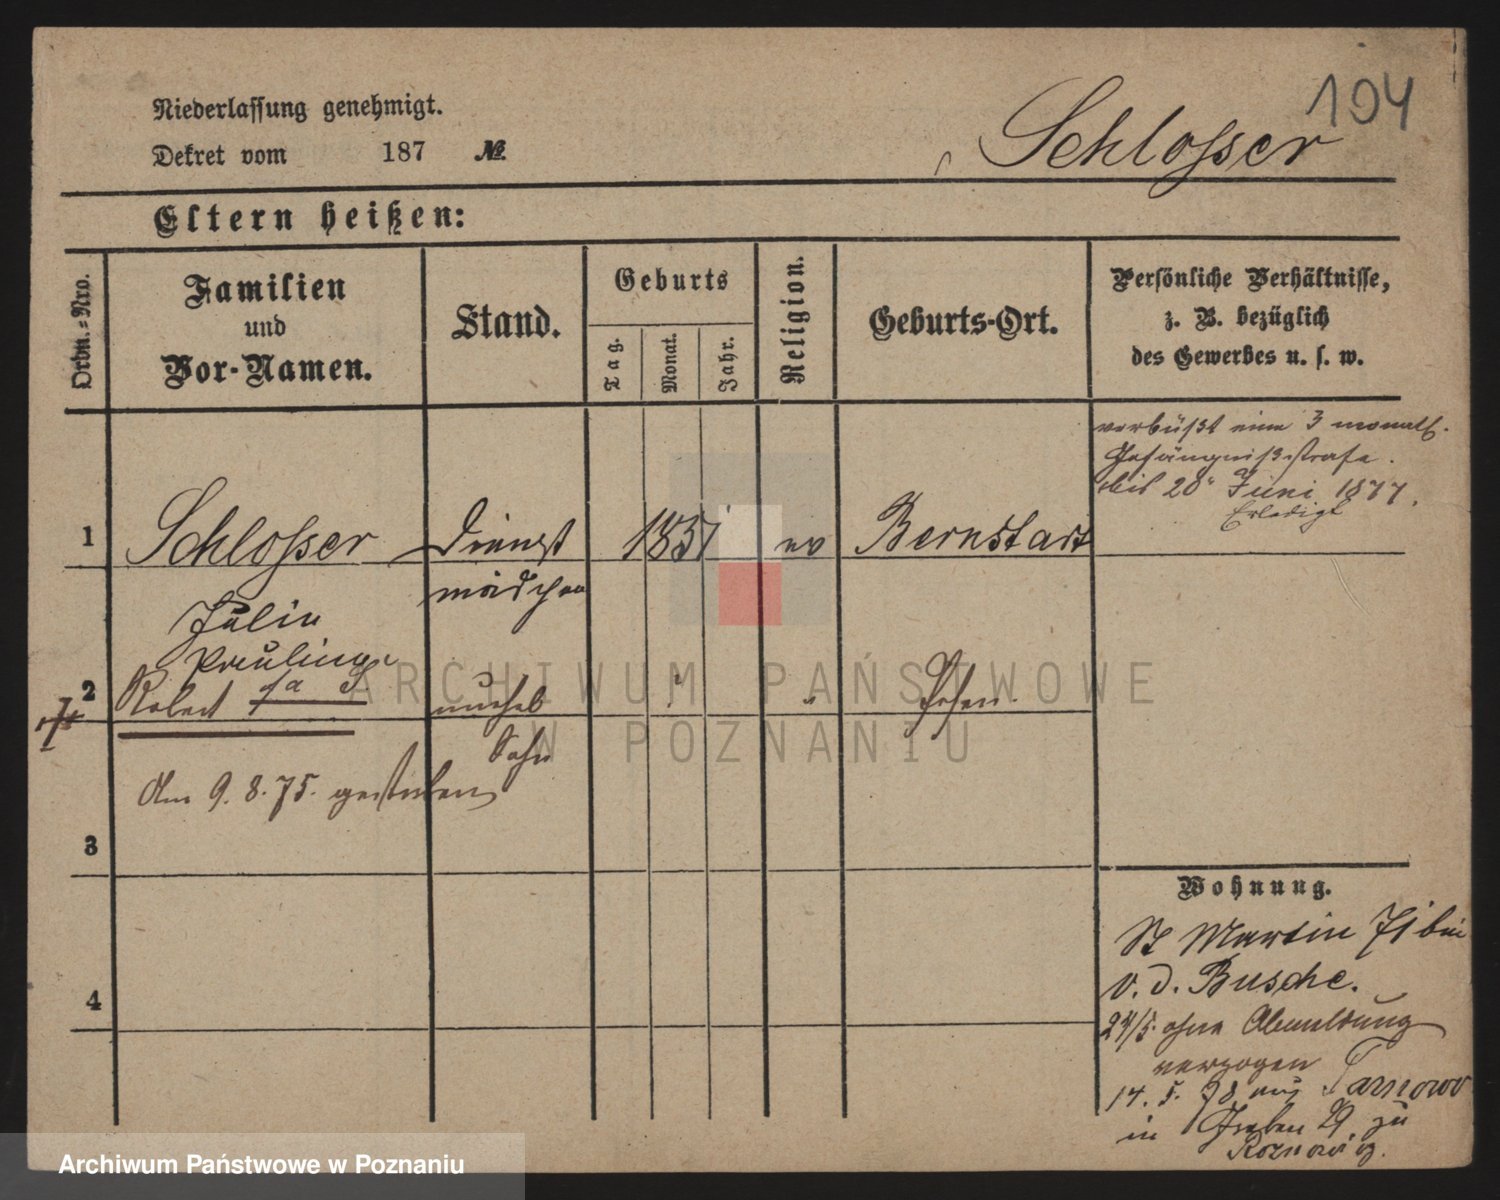 104
Niederlassung genehmigt.
Schlosser
Dekret vom 187 №
Eltern heißen:
Ordn.=Nro.
Familien
und
Vor-Namen.
Stand.
Geburts
Tag.
Monat.
Jahr.
Religion.
Geburts-Ort.
Persönliche Verhältnisse,
z. B. bezüglich
des Gewerbes u. s. w.
verbüßt eine 3 monatl.
Gefängnißstrafe.
bis 20 Juni 1877.
Erledigt
1 Schlosser Dienst 1851 ev Bernstadt
mädchen
Julie
Pauline
2 Robert unehel " Posen.
Sohn
Am 9. 8. 75. gestorben
3
4
Wohnung.
St Martin 71 bei
v. d. Busche.
24/5. ohne Abmeldung
verzogen
14. 5. 78 aus Tarnowo
in Graben 29 zu
ARCHIWUM PAŃSTWOWE
W POZNANIU
Archiwum Państwowe w Poznaniu